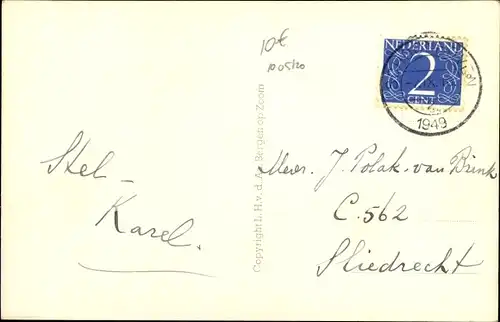 10€
1005/20
NEDERLAND
2
CENT
1949
Stel-
Karel.
Copyright L.H.v.d.A., Bergen op Zoom
Mevr. J. Polak-van Brink
C. 562
Sliedrecht